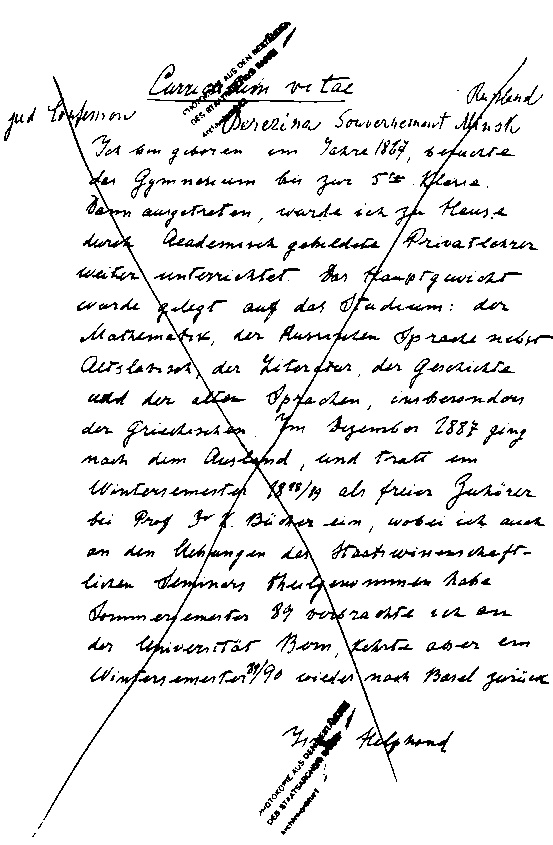 Curriculum vitae
PHOTOKOPIE AUS DEN BESTÄNDEN
DES STAATSARCHIVS BASEL
Rußland
jud Confession
Berezina Gouvernement Minsk
Ich bin geboren im Jahre 1867, besuchte
das Gymnasium bis zur 5ten Klasse.
Dann ausgetreten, wurde ich zu Hause
durch Academisch gebildete Privatlehrer
weiter unterrichtet. Das Hauptgewicht
wurde gelegt auf das Studium: der
Mathematik, der Russischen Sprache nebst
Altslavisch, der Literatur, der Geschichte
und der alten Sprachen, insbesonders
der Griechischen. Im Dezember 1887 ging
nach dem Ausland, und tratt im
Wintersemester 1888/89 als freier Zuhörer
bei Prof Dr K. Bücher ein, wobei ich auch
an den Uebungen des Staatswissenschaft-
lichen Seminars theilgenommen habe
Sommersemester 89 verbrachte ich an
der Universität Bern, kehrte aber im
Wintersemester 89/90 wieder nach Basel zurück
Helphand
PHOTOKOPIE AUS DEN BESTÄNDEN
DES STAATSARCHIVS BASEL